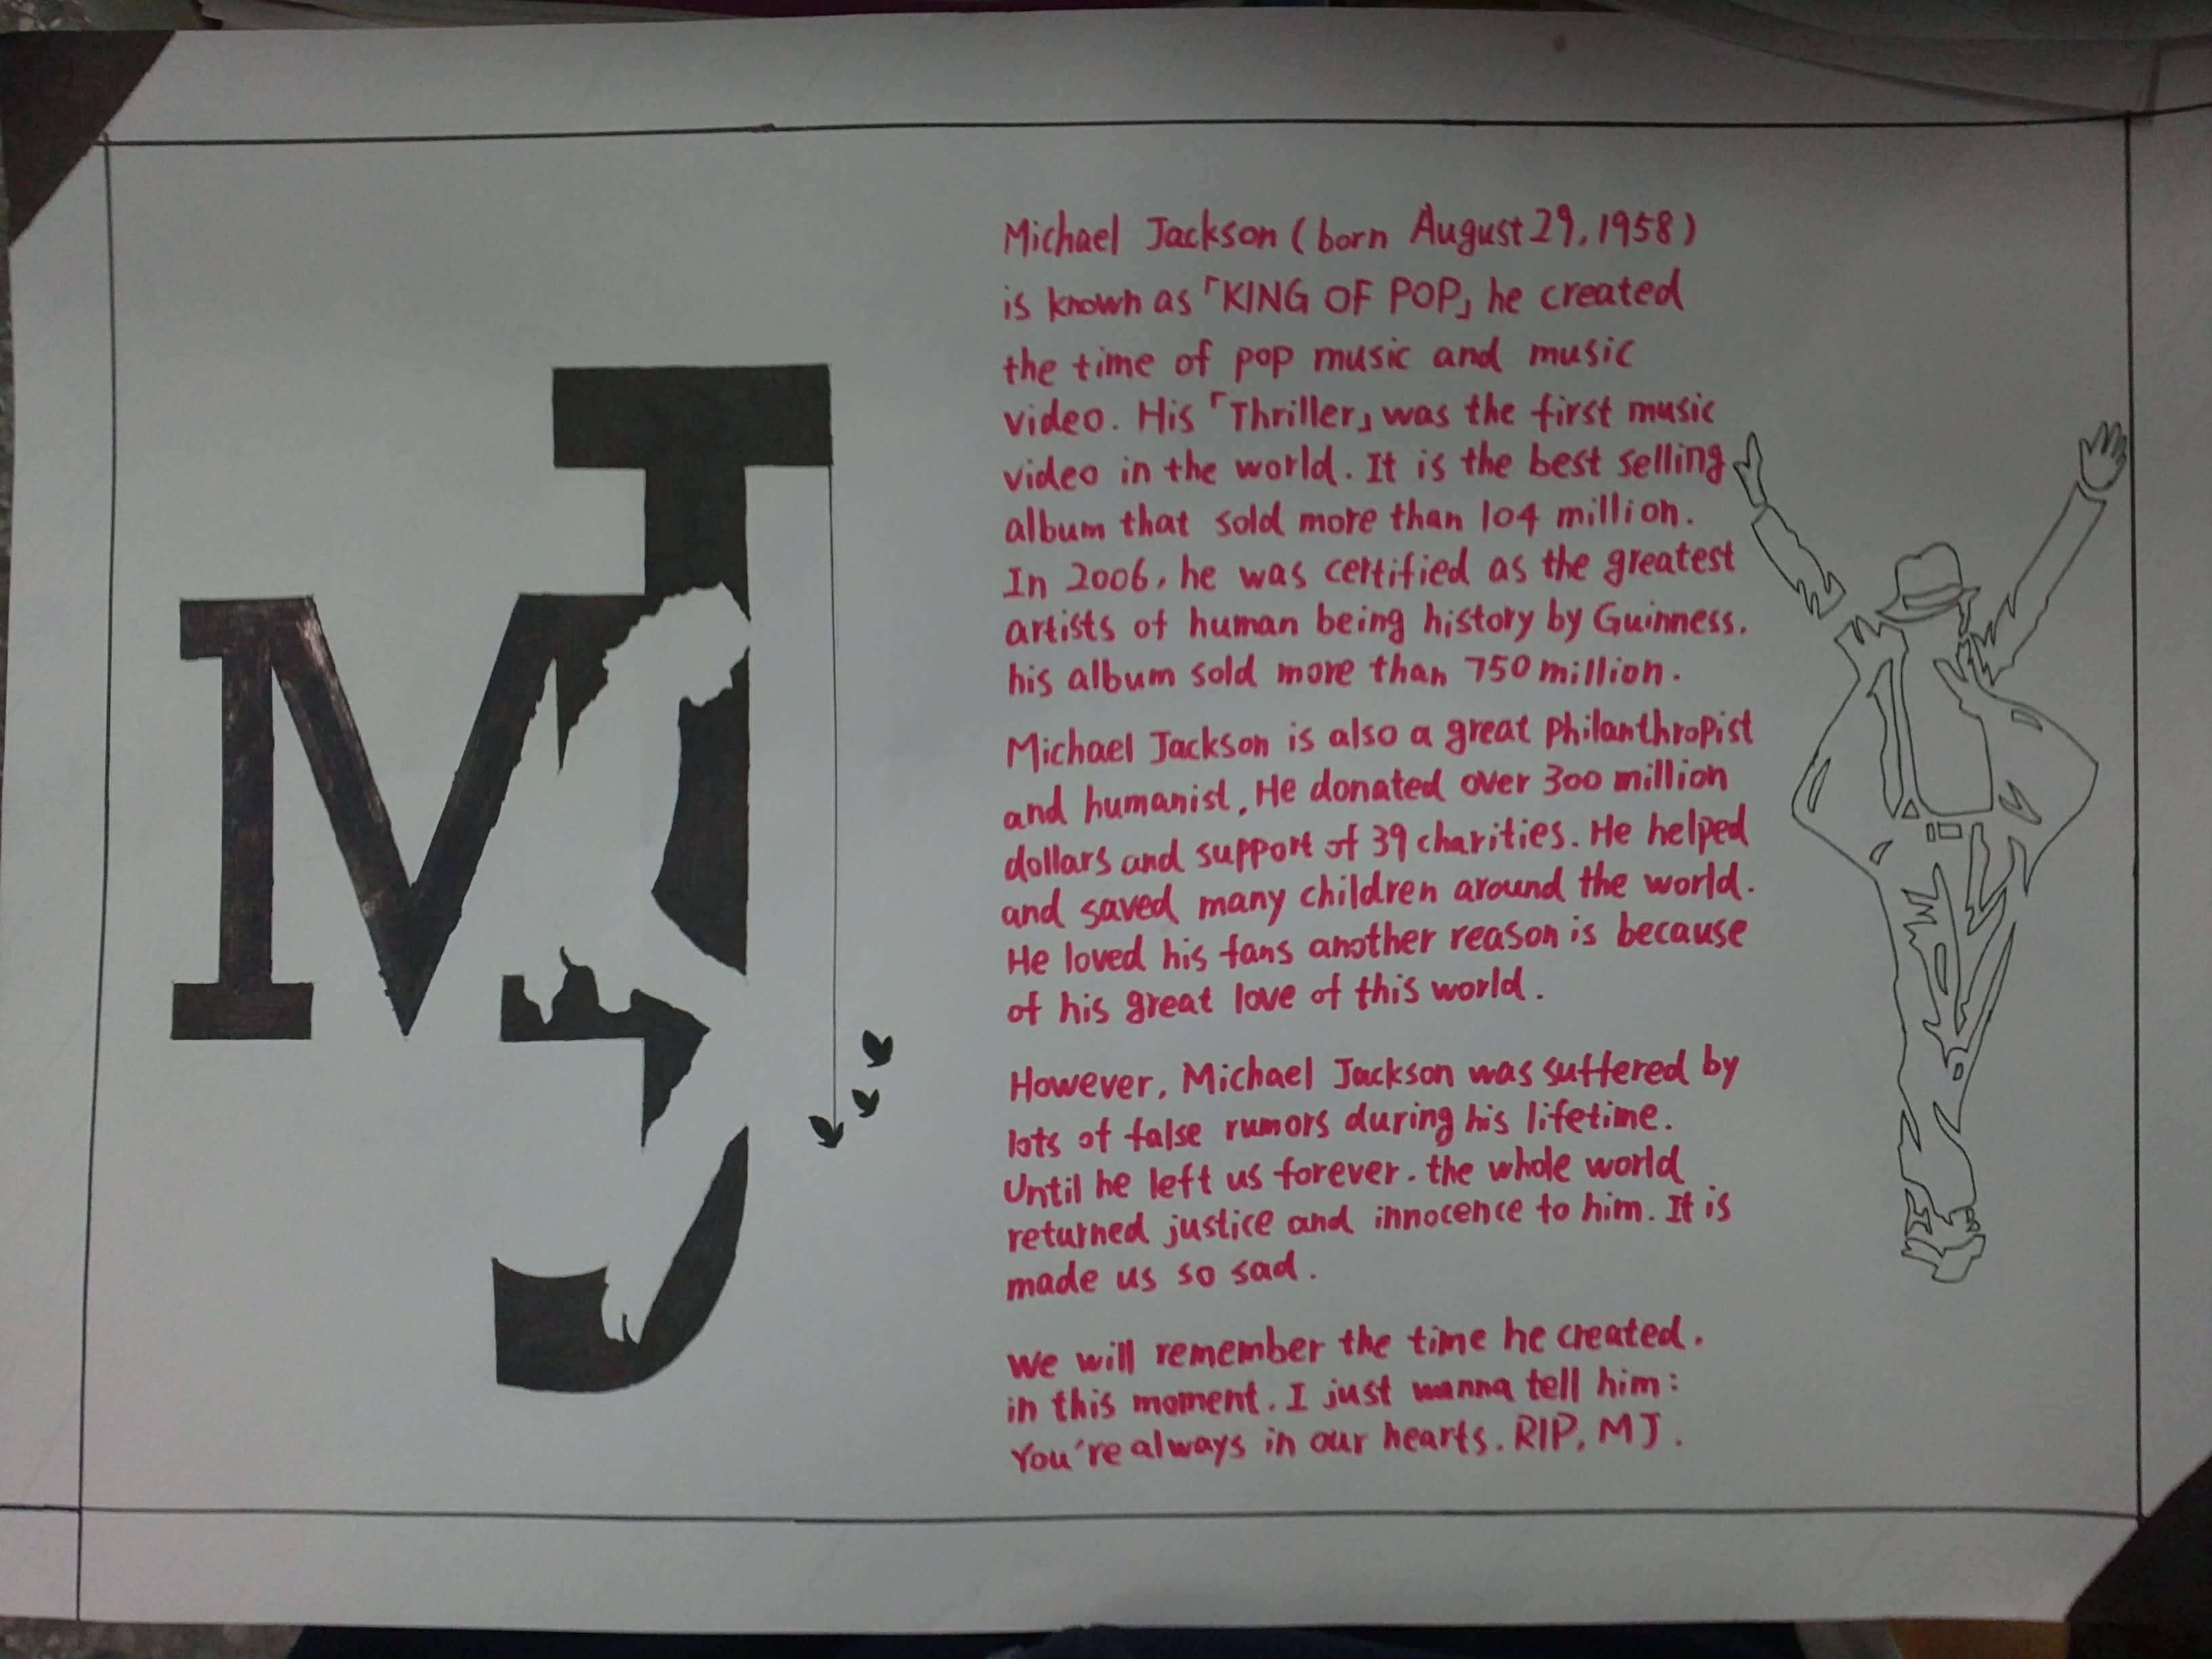 MJ
Michael Jackson (born August 29, 1958)
is known as「KING OF POP」he created
the time of pop music and music
video. His「Thriller」was the first music
video in the world. It is the best selling
album that sold more than 104 million.
In 2006, he was certified as the greatest
artists of human being history by Guinness.
his album sold more than 750 million.
Michael Jackson is also a great philanthropist
and humanist, He donated over 300 million
dollars and support of 39 charities. He helped
and saved many children around the world.
He loved his fans another reason is because
of his great love of this world.
However, Michael Jackson was suffered by
lots of false rumors during his lifetime.
Until he left us forever. the whole world
returned justice and innocence to him. It is
made us so sad.
We will remember the time he created.
in this moment. I just wanna tell him:
You're always in our hearts. RIP, MJ.